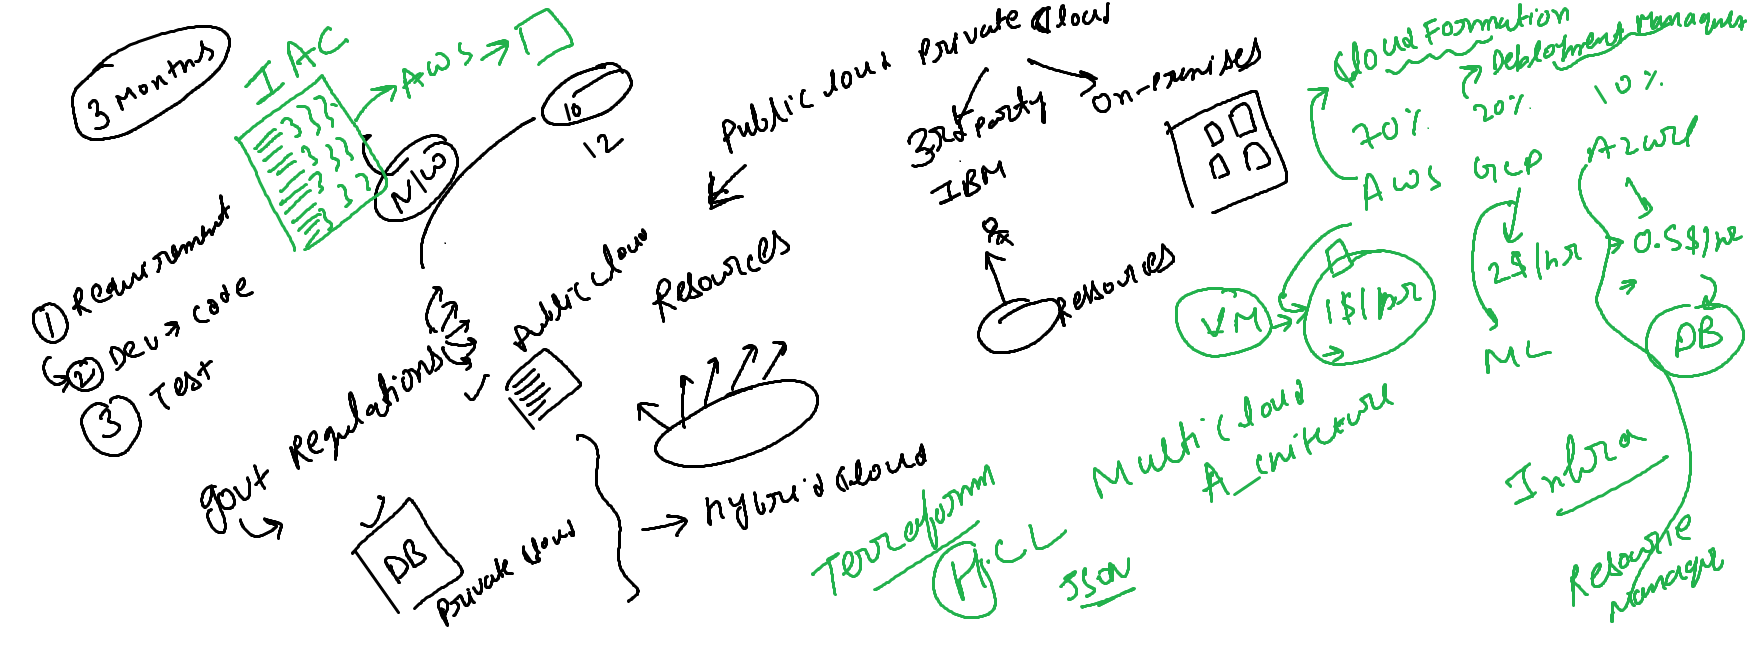 3 Months
IAC
AWS
N/W
10
12
1 Requirement
2 Dev → code
3 Test
Govt Regulations
Public cloud
DB
Private cloud
Hybrid cloud
Resources
Public cloud Private cloud
3rd party
IBM
On-premises
Ressources
Cloud Formation
Deployment Manager
70% 20% 10%
AWS GCP Azure
VM
1$/hr
2$/hr
0.5$/hr
ML
DB
Multi cloud
A_chitecture
Terraform
H.CL
JSON
Infra
Resource
Manager